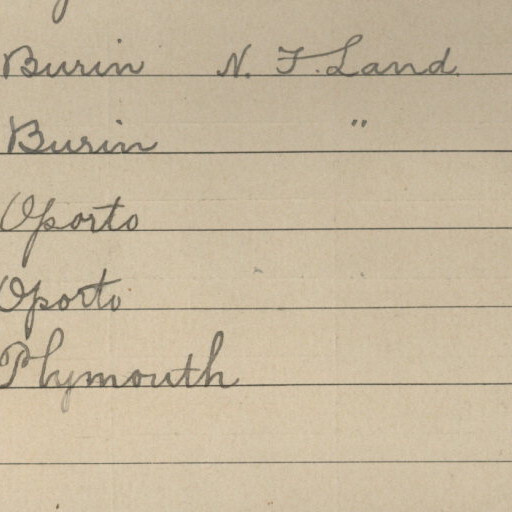 Burin N. F. Land
Burin "
Oporto
Oporto
Plymouth